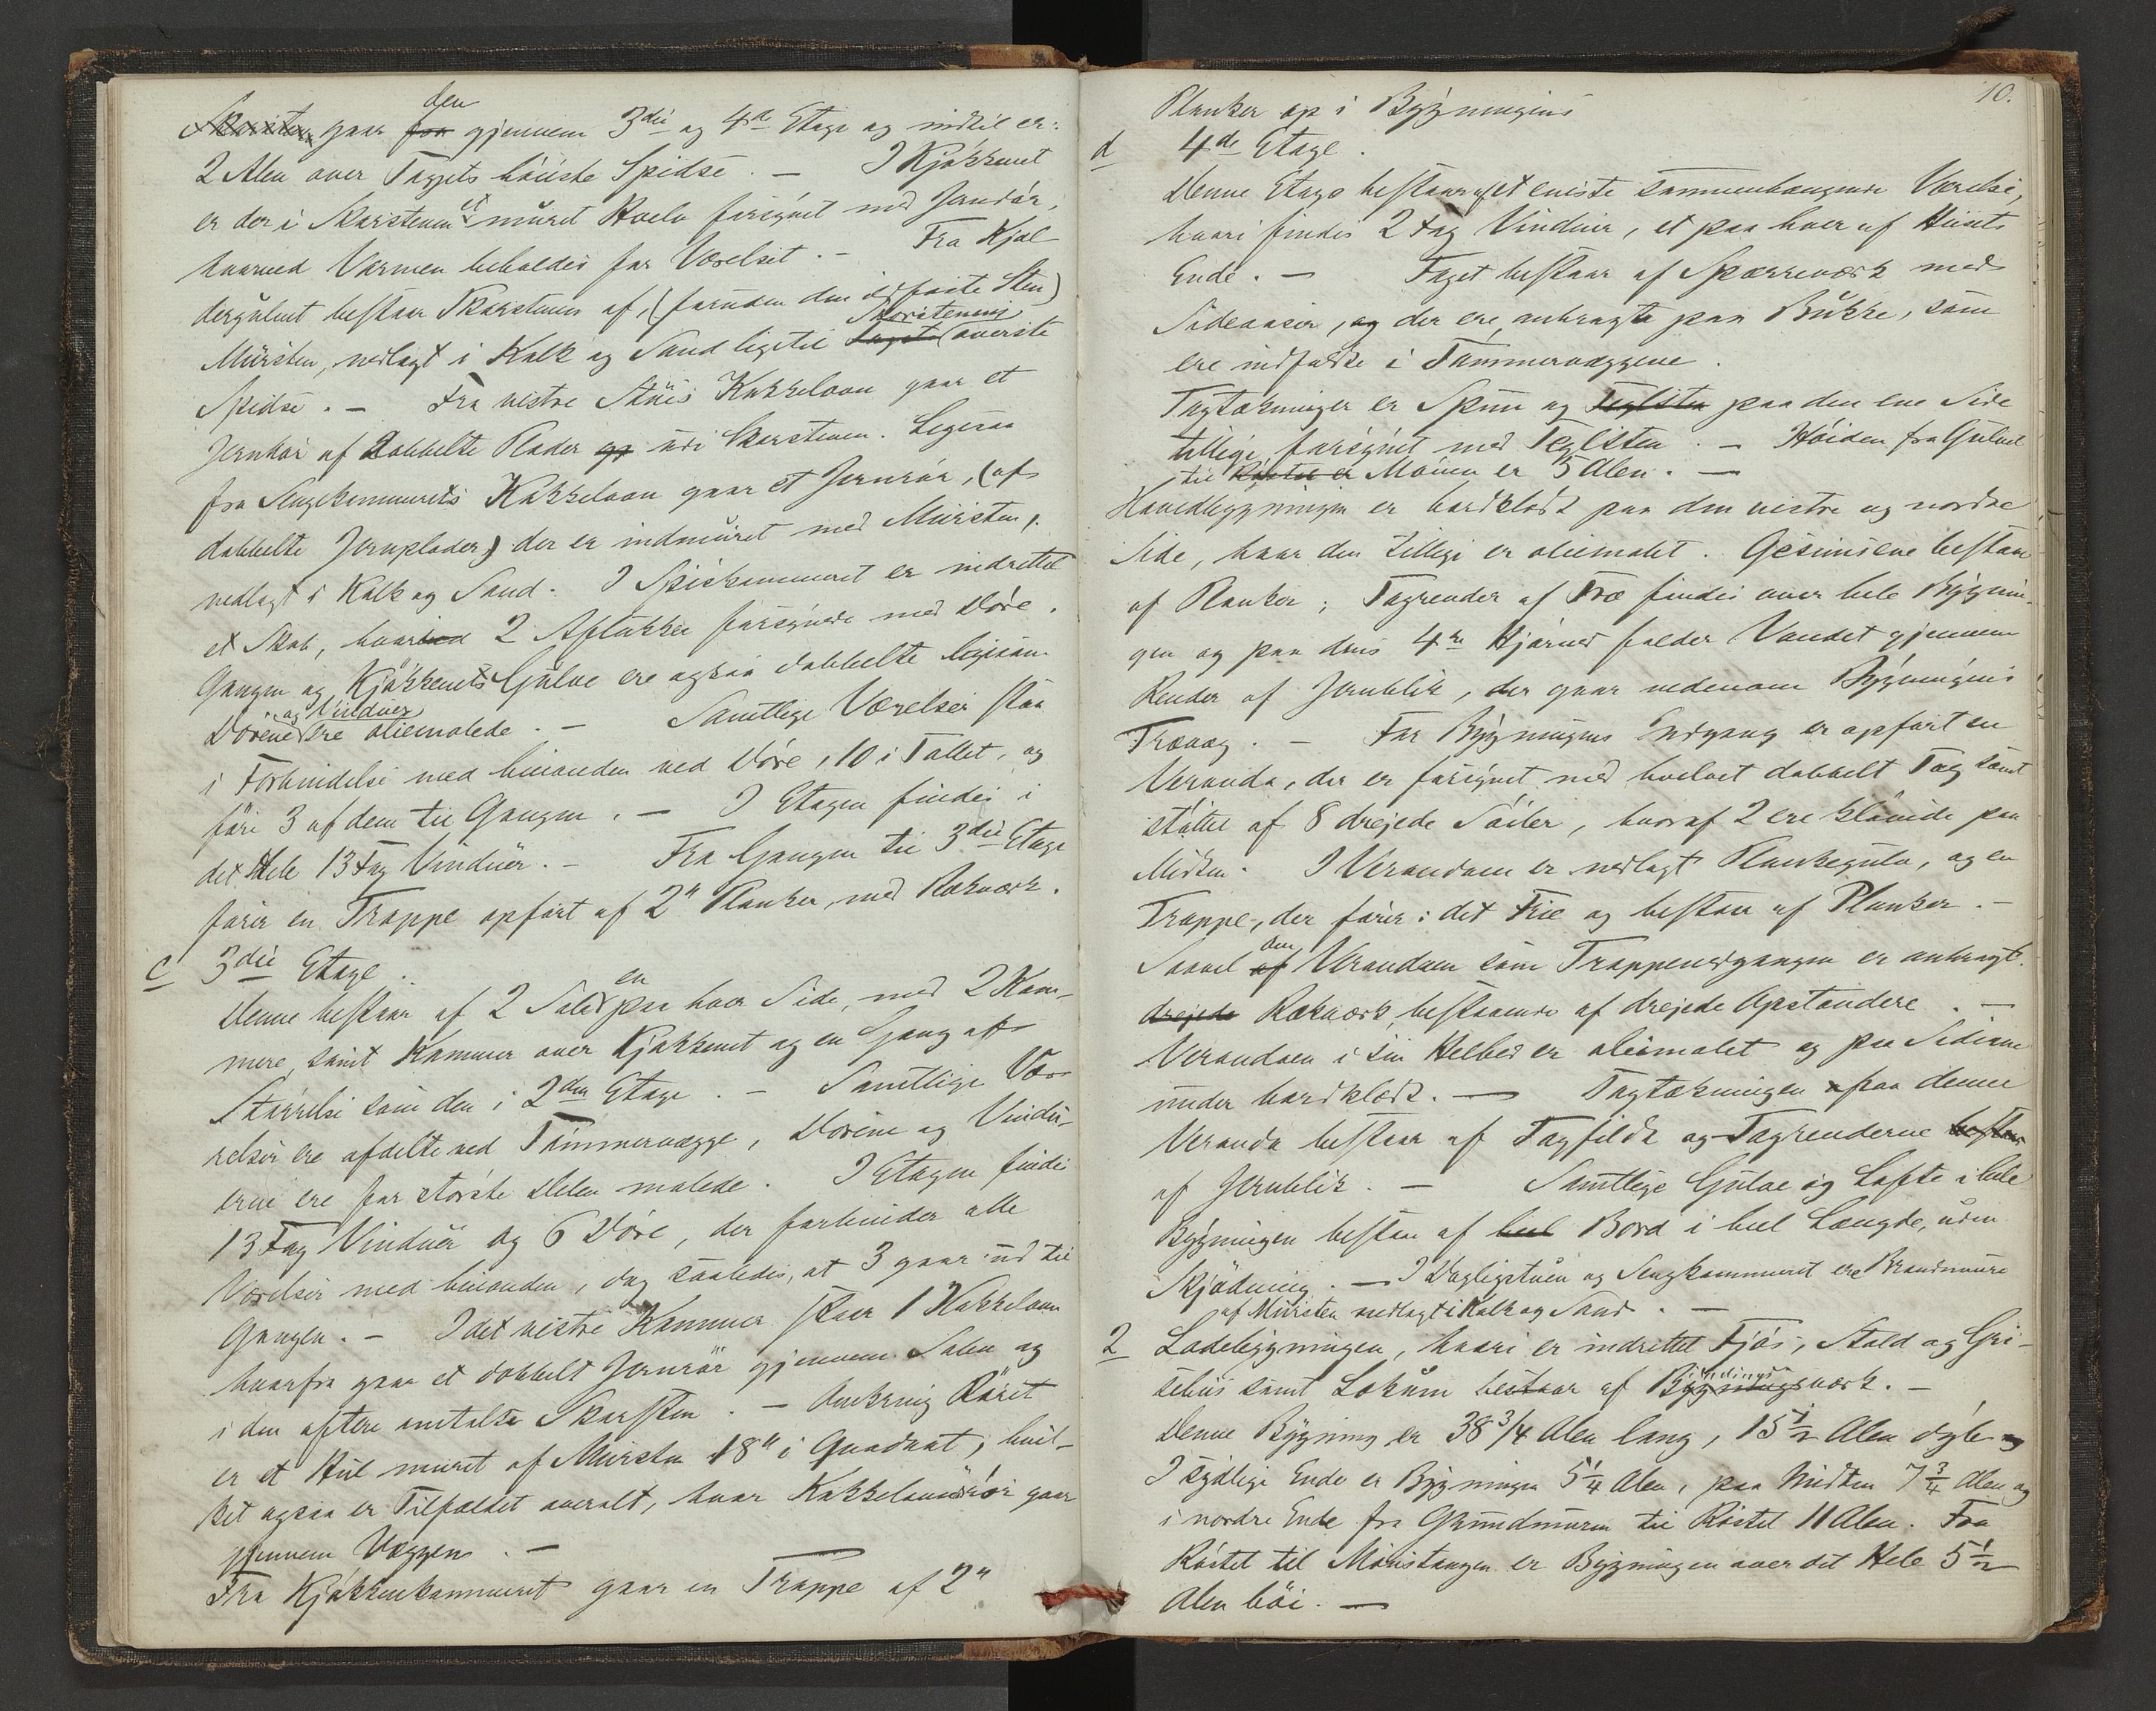 Skorsten gaar fra den gjennem 3die og 4de Etage og indtil er:
2 Alen over Taggets höieste Spidse. — I Kjøkkenet
er der i Skorstenen et muret Hvelv forsynet med Jerndør,
hvormed Varmen beholdes for Værelset. — Fra Kjæl
dergulvet bestaar Skorstenen af, (foruden den ildfaste Sten)
Mursten, nedlagt i Kalk og Sand ligetil Taget Skorstenens överste
Spidse. — Fra vestre Stues Kakkelovn gaar et
Jernrør af dobbelte Plader op ud i Skorstenen. Ligesaa
fra Sengekammerets Kakkelovn gaar et Jernrør, (af
dobbelte Jernplader) der er indmuret med Mursten,
nedlagt i Kalk og Sand. I Spiskammeret er indrettet
et Skab, hvori 2 Aflukker forsynede med Døre.
Gangen og Kjøkkenets Gulve ere ogsaa dobbelte ligesom
Dørene og Vinduer ere oliemalede. — Samtlige Værelser staa
i Forbindelse med hinanden ved Døre, 10 i Tallet, og
före 3 af dem til Gangen. — I Etagen findes i
det Hele 13 Fag Vinduer. — Fra Gangen til 3die Etage
fører en Trappe opført af 2" Planker, med Rækværk.
c 3die Etage.
Denne bestaar af 2 Sale en paa hver Side, med 2 Kam-
mere, samt Kammer over Kjøkkenet og en Gang af
Størrelse som den i 2den Etage. — Samtlige Væ-
relser ere afdelte ved Tømmervægge, Dørene og Vindu-
erne ere for største Delen malede. I Etagen findes
13 Fag Vinduer og 6 Døre, der forbinder alle
Værelser med hinanden, dog saaledes, at 3 gaar ud til
Gangen. — I det vestre Kammer staar 1 Kakkelovn
hvorfra gaar et dobbelt Jernrör gjennem Salen og
i den oftere omtalte Skorsten. — Omkring Röret
er et Hul muret af Mursten 18" i Quadrat, hvil-
ket ogsaa er Tilfældet overalt, hvor Kakkelovnsrør gaar
gjennem Væggen. —
Fra Kjøkkenkammeret gaar en Trappe af 2"
10.
Planker op i Bygningens
d 4de Etage.
Denne Etage bestaar af et eneste sammenhængende Værelse,
hvori findes 2 Fag Vinduer, et paa hver af Husets
Ende. — Taget bestaar af Sparreværk med
Sideaaser, og der ere anbragte paa Bukke, som
ere indfældte i Tømmervæggene.
Tagtækninger er Spon og Teglsten paa den ene Side
tillige forsynet med Teglsten. — Höiden fra Gulvet
til Røstet er Mönen er 5 Alen. —
Hovedbygningen er bordklædt paa den vestre og nordre
Side, hvor den tillige er oliemalet. Gesimsene bestaar
af Planker; Tagrender af Træ findes over hele Bygnin-
gen og paa dens 4re Hjørner falder Vandet gjennem
Render af Jernblik, der gaar nedenom Bygningens
Trævæg. — For Bygningens Indgang er opført en
Veranda, der er forsynet med hvelvet dobbelt Tag samt
støttet af 8 drejede Söiler, hvoraf 2 ere kløvede paa
Midten. I Verandaen er nedlagt Plankegulv, og en
Trappe, der fører i det Frie og bestaar af Planker. —
Saavel af den Verandaen som Trappenedgangen er anbragt
drejede Rækværk bestaaende af drejede Opstandere. —
Verandaen i sin Helhed er oliemalet og paa Siderne
under bordklædt. — Tagtækningen paa denne
Veranda bestaar af Tagfildt og Tagrenderne bestaar
af Jernblik. — Samtlige Gulve og Lofte i hele
Bygningen bestaar af heel Bord i heel Længde, uden
Skjødning. — I Dagligstuen og Sengkammeret ere Brandmure
af Mursten nedlagt i Kalk og Sand. —
2 Ladebygningen, hvori er indrettet Fjøs, Stald og Gri-
sehus samt Lokum bestaar af Bygnings Bindingsværk. —
Denne Bygning er 38 3/4 Alen lang, 15 1/2 Alen dyb og
I sydlige Ende er Bygningen 5 1/4 Alen, paa Midten 7 3/4 Alen og
i nordre Ende fra Grundmuren til Röstet 11 Alen. Fra
Röstet til Mönestangen er Bygningen over det Hele 5 1/2
Alen höi. —